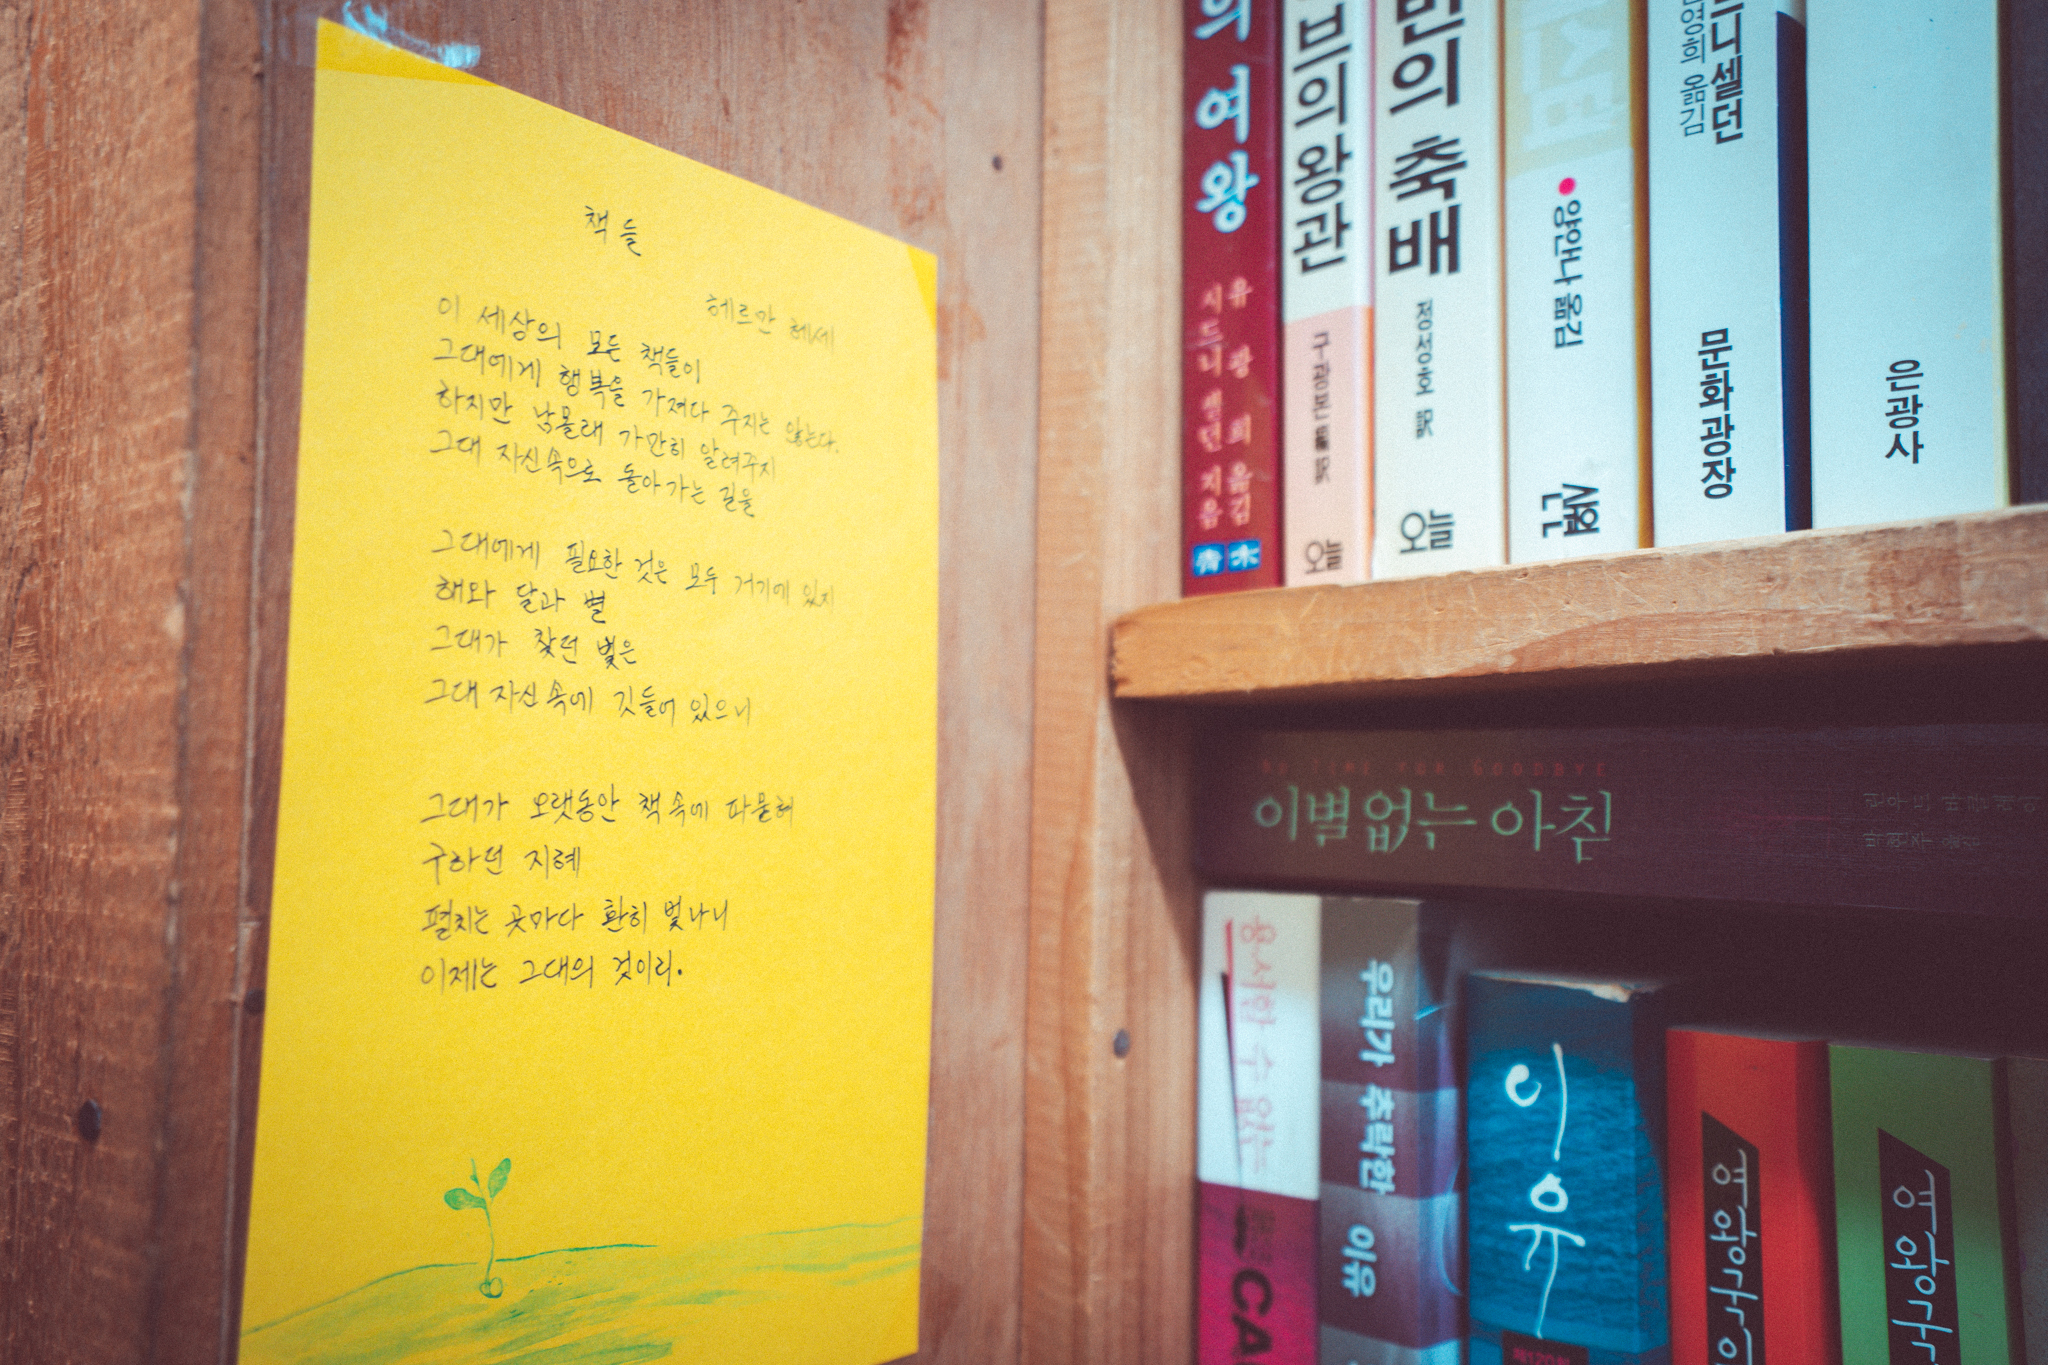 책들
헤르만 헤세
이 세상의 모든 책들이
그대에게 행복을 가져다 주지는 않는다.
하지만 남몰래 가만히 알려주지
그대 자신속으로 돌아가는 길을
그대에게 필요한 것은 모두 거기에 있지
해와 달과 별
그대가 찾던 빛은
그대 자신 속에 깃들어 있으니
그대가 오랫동안 책 속에 파묻혀
구하던 지혜
펼치는 곳마다 환히 빛나니
이제는 그대의 것이리.
의 여왕
유광희 옮김
시드니 셀던 지음
青木
브의 왕관
구광본
오늘
민의 축배
정성호 譯
오늘
양안나 옮김
드니 셀던
영희 옮김
문화광장
은광사
NO TIME FOR GOODBYE
이별 없는 아침
용서할 수 없는
CA
우리가 추락한 이유
이유
여왕국의
여왕국